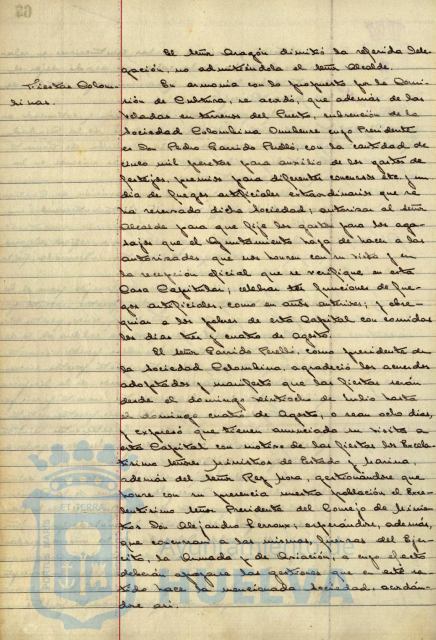 El señor Aragón dimitió la referida Dele-
gación, no admitiéndola el señor Alcalde.
Fiestas Colom-
binas.
En armonía con lo propuesto por la Comi-
sión de Cultura, se acordó, que además de las
veladas en terrenos del Puerto, subvención de la
Sociedad Colombina Onubense cuyo Presidente
es Don Pedro Garrido Perelló, con la cantidad de
cinco mil pesetas para auxilio de los gastos de
festejos, premios para diferentes concursos etc, y un
día de fuegos artificiales extraordinarios que se
ha reservado dicha Sociedad; autorizar al señor
Alcalde para que fije los gastos para los aga-
sajos que el Ayuntamiento haya de hacer a las
autoridades que nos honren con su visita y en
la recepción oficial que se verifique en esta
Casa Capitular; celebrar tres funciones de fue-
gos artificiales, como en años anteriores; y obse-
quiar a los pobres de esta Capital con comidas
los días tres y cuatro de Agosto.
El señor Garrido Perelló, como presidente de
la Sociedad Colombina, agradeció los acuerdos
adoptados y manifestó que las fiestas serán
desde el domingo veintiocho de Julio hasta
el domingo cuatro de Agosto, o sean ocho días,
y expresó que tienen anunciada su visita a
esta Capital con motivo de las fiestas los Excelen-
tísimos señores Ministros de Estado y Marina,
además del señor Rey Mora, gestionándose que
honre con su presencia nuestra población el Exce-
lentísimo señor Presidente del Consejo de Minis-
tros Don Alejandro Lerroux; esperándose, además,
que concurran a las mismas, fuerzas del Ejér-
cito, la Armada y de Aviación, a cuyo efecto
deberían apoyarse las gestiones que en este sen-
tido hace la mencionada Sociedad, acordán-
dose así.